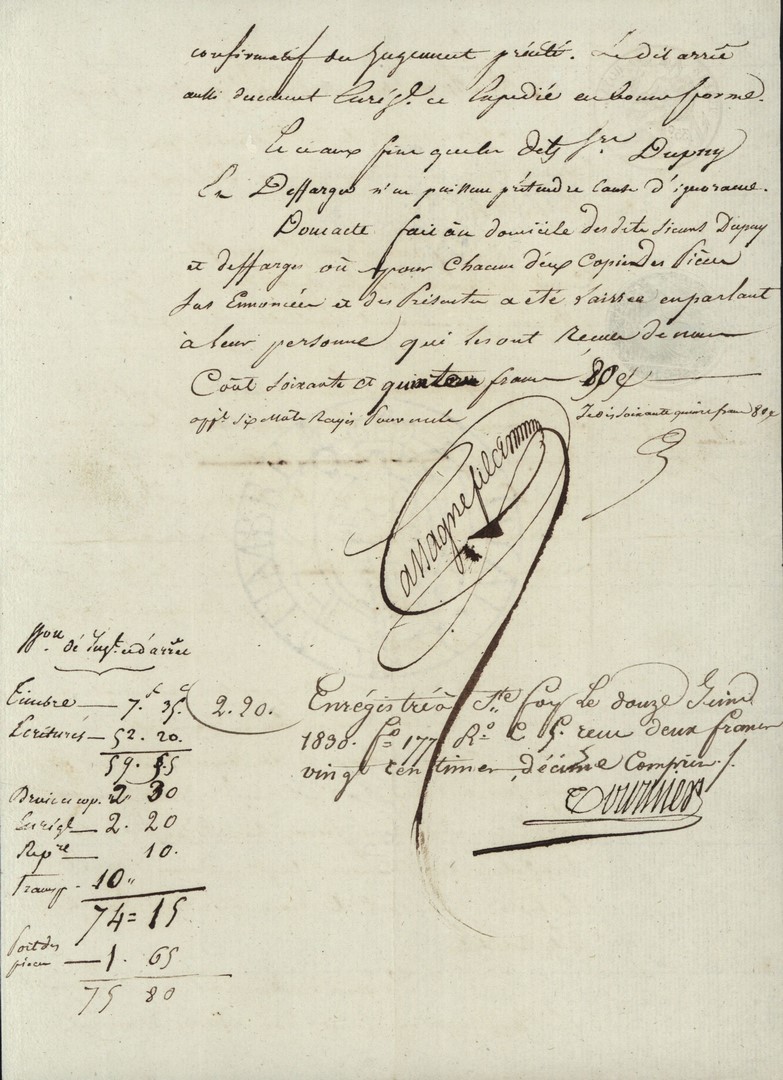 confirmatif du Jugement précité. Le dit arrêt
aussi duement Enrég.t et Expedié en bonne forme.
Et ce aux fins que les dits Srs Dupuy
Et Deffarges n'en puissent prétendre cause d'ignorance.
Dont acte fait au domicile des dits Sieurs Dupuy
et deffarges où pour Chacun d'eux Copie des Pièces
Sus Enoncées et des Présentes a été Laissée en parlant
à leur personne qui les ont Reçues de nous
Coût soixante et quinze francs 80 c
app.t six mots Rayés Je dis soixante quinze francs 80 c
on de Jug.t et d'arrêt
Timbre — 7.f 35.c
Ecritures — 52. 20.
59. 55
Droit de cop. 2 30
Enrégt — 2. 20
Repre — 10.
Transp. - 10"
74 = 15
Port des
pièces — 1. 65
75 80
2.20. Enrégistré à Ste foy Le douze Juin
1838. fo 177 Ro C. 5. reçu deux francs
vingt centimes, décime Compris.